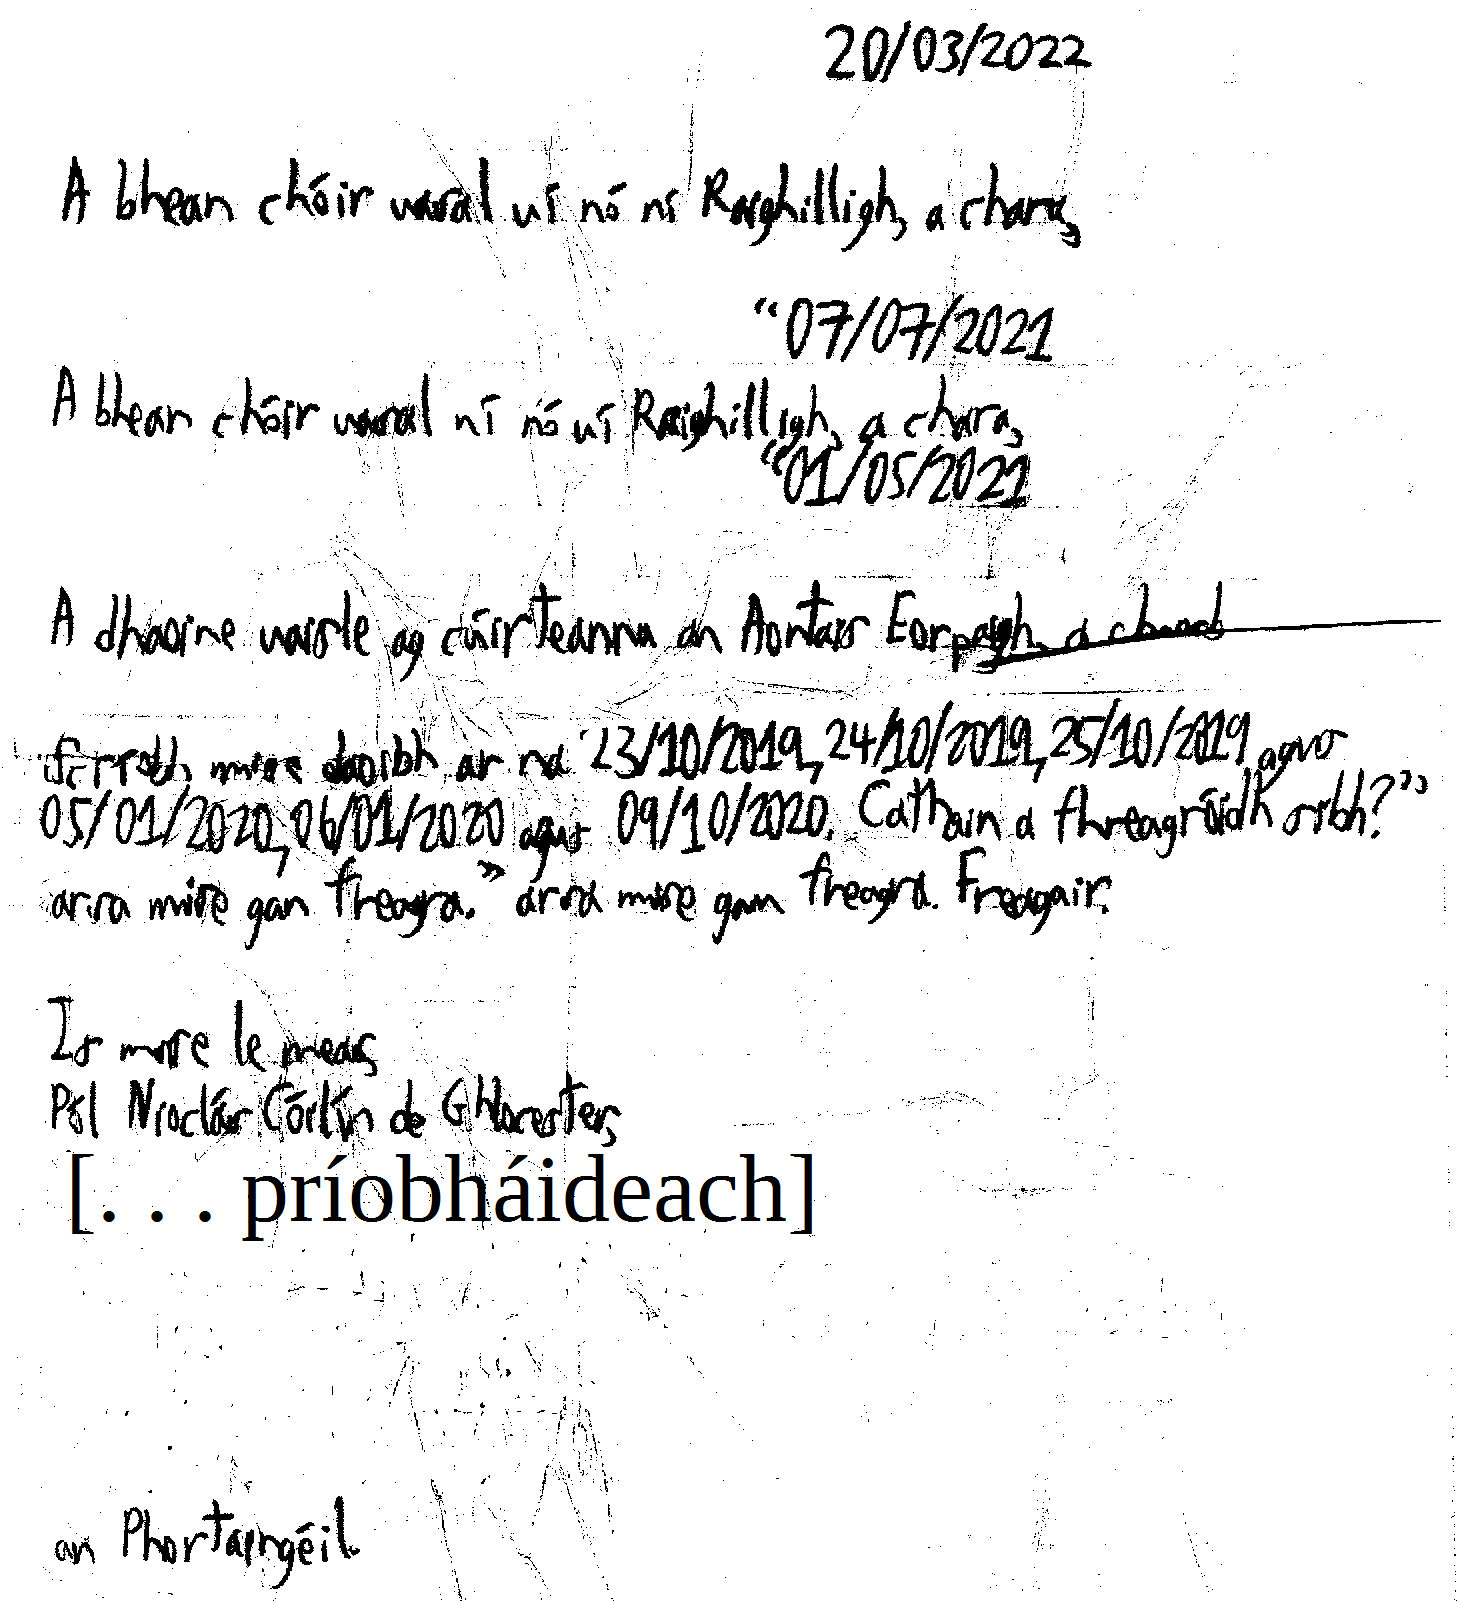 20/03/2022
A bhean chóir uasal uí nó ní Raighilligh, a chara,
“07/07/2021
A bhean chóir uasal ní nó uí Raighilligh, a chara,
“01/05/2021
A dhaoine uaisle ag cúirteanna an Aontais Eorpaigh, a chairde
Scríobh mise daoibh ar na 23/10/2019, 24/10/2019, 25/10/2019 agus
05/01/2020, 06/01/2020 agus 09/10/2020. Cathain a fhreagróidh sibh?”
arsa mise gan freagra.” arsa mise gan freagra. Freagair.
Is mise le meas,
Pól Nioclás Cóilín de Ghlocester,
[. . . príobháideach]
an Phortaingéil.